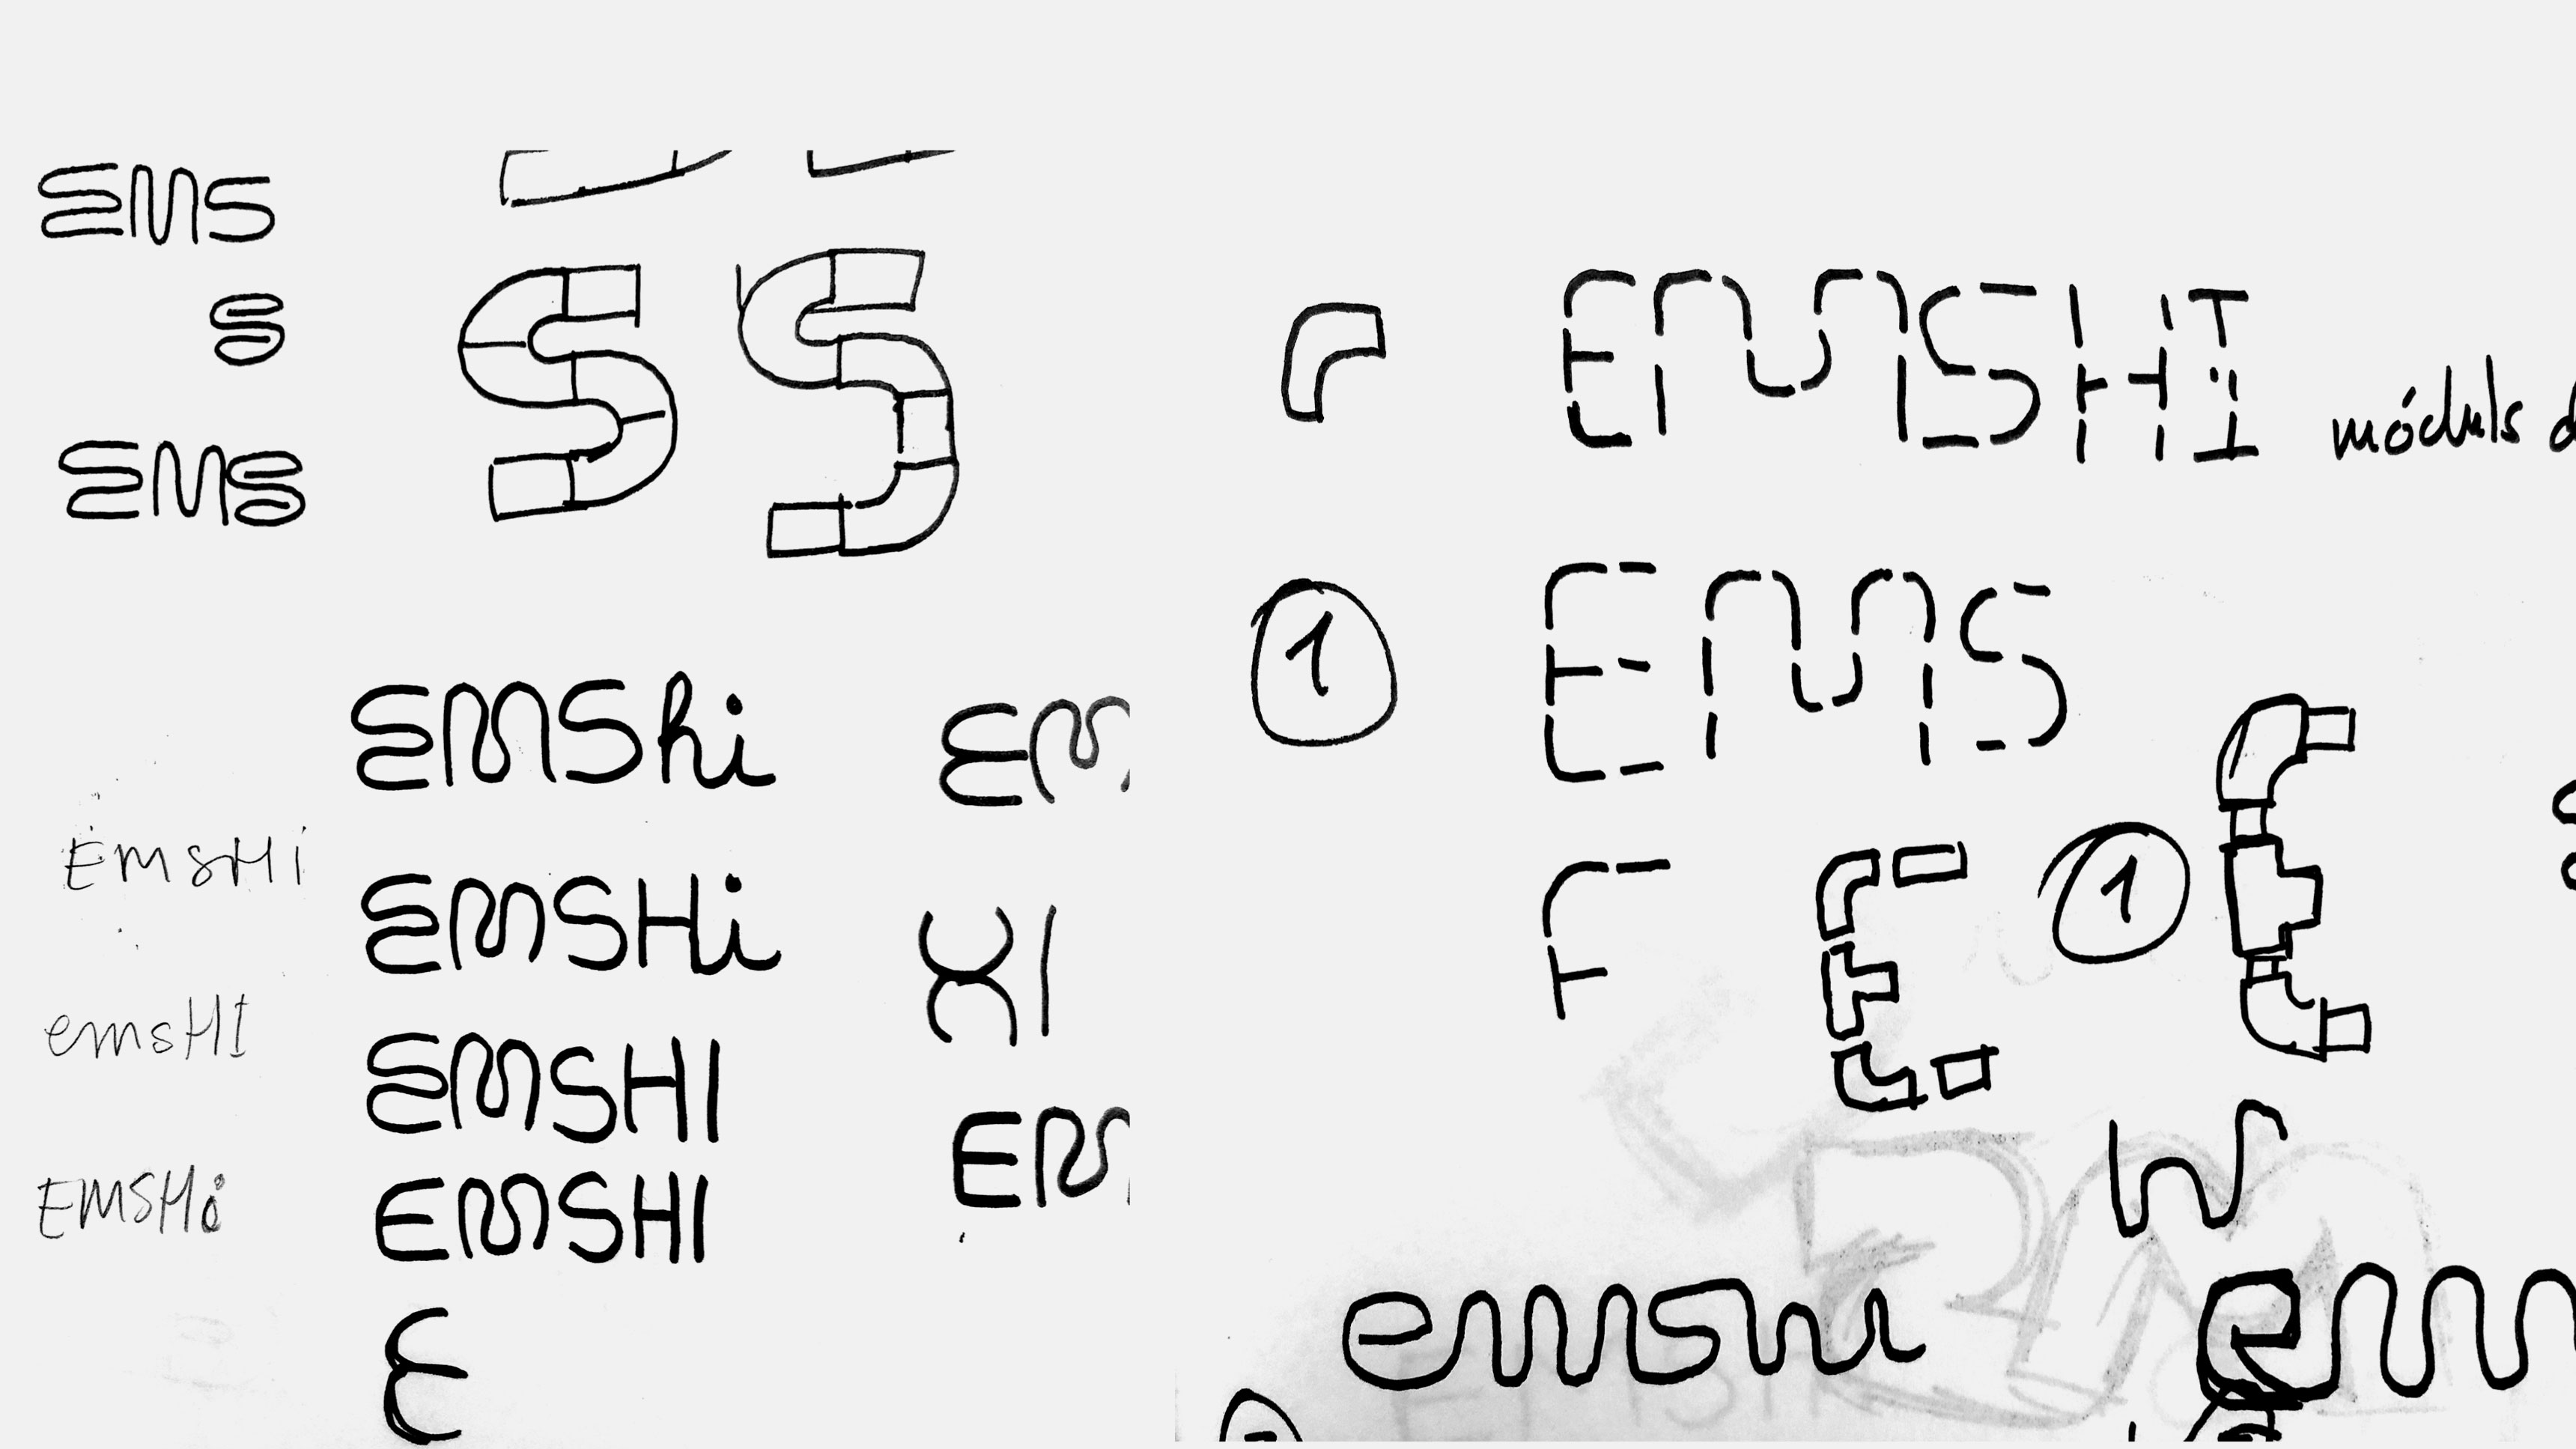 EMS
S
EMS
S S
EMShi
EM
EmsHi
EMSHi
XI
emsHI
EMSHI
EM
EMSHi
EMSHI
E
EMSHI
móduls
1
EMS
F E 1 E
emshi
em